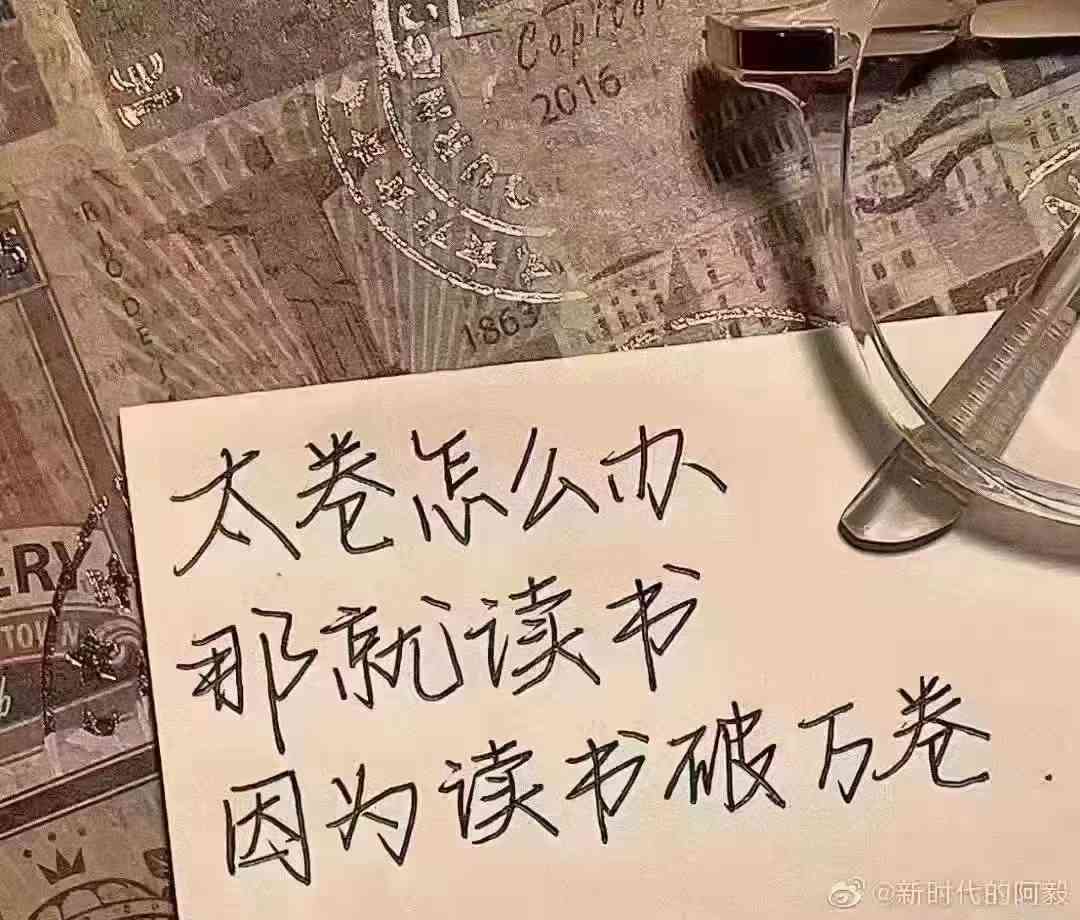 Copires
2016
1863
RIO DE J
S
ERY
TOWN
太卷怎么办
那就读书
因为读书破万卷.
@新时代的阿毅